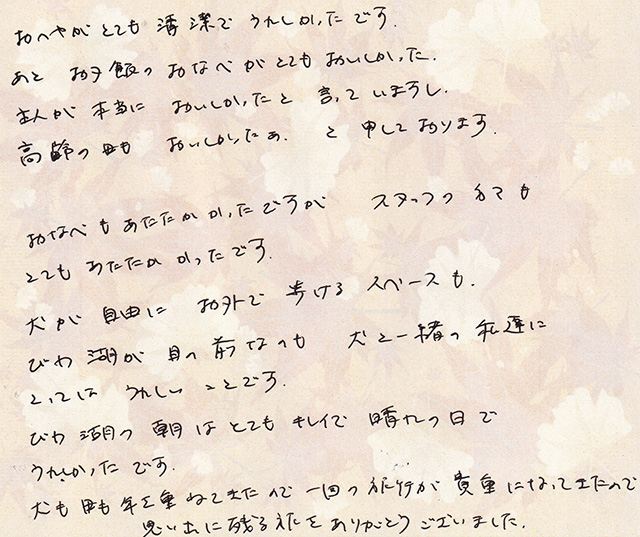 おへやがとても清潔でうれしかったです.
あと お夕飯のおなべがとてもおいしかった.
主人が本当に おいしかったと言っていますし.
高齢の母も おいしかったぁ. と申しております.
おなべもあたたかかったですが スタッフの方でも
とてもあたたかかったです.
犬が自由にお外で歩けるスペースも.
びわ湖が目の前なのも 犬と一緒の私達に
とってはうれしいことです.
びわ湖の朝はとてもキレイで晴れの日で
うれしかったです.
犬も母も年を重ねてきたので一回の旅行が貴重になってきたので
思い出に残る旅をありがとうございました.